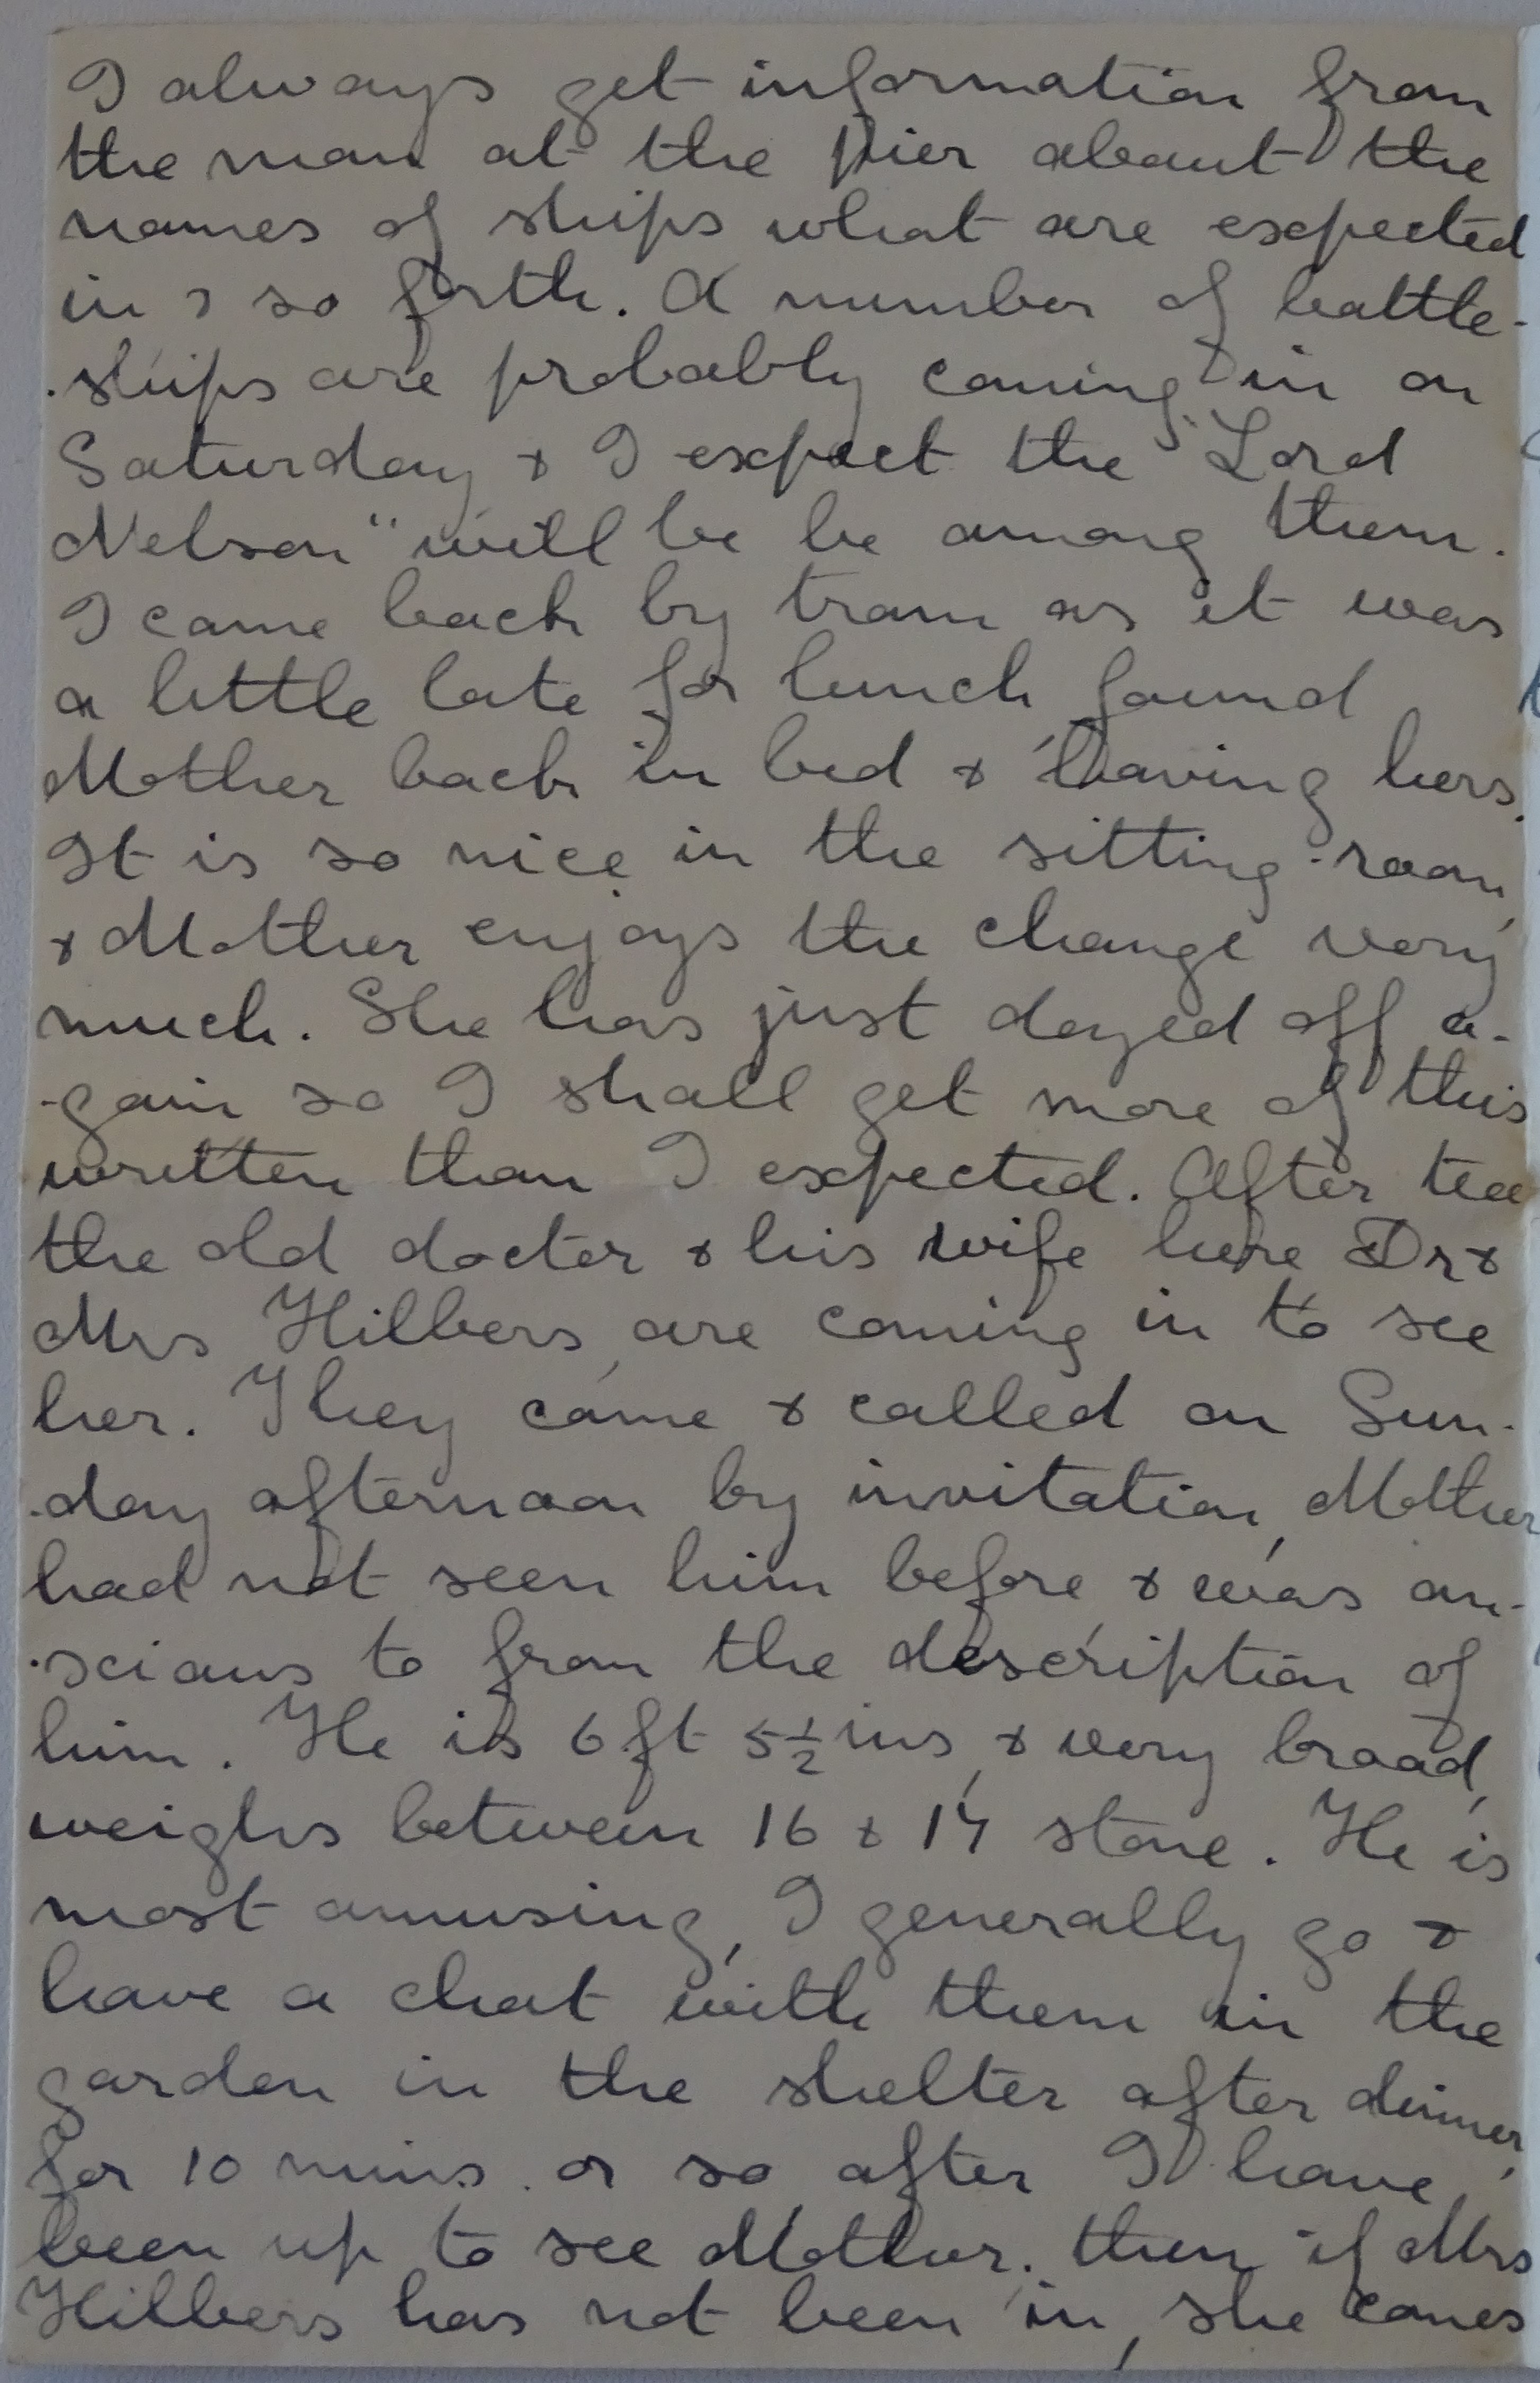 I always get information from
the man at the pier about the
names of ships what are expected
in & so forth. A number of battle-
-ships are probably coming in on
Saturday & I expect the "Lord
Nelson" will be be among them.
I came back by tram as it was
a little late for lunch found
Mother back in bed & having hers.
It is so nice in the sitting-room,
& Mother enjoys the change very
much. She has just dozed off a-
-gain so I shall get more of this
written than I expected. After tea
the old doctor & his wife here Dr &
Mrs Hilbers, are coming in to see
her. They came & called on Sun-
-day afternoon by invitation, Mother
had not seen him before & was an-
-scious to from the description of
him. He is 6 ft 5½ ins, & very broad,
weighs between 16 & 17 stone. He is
most amusing, I generally go &
have a chat with them in the
garden in the shelter after dinner,
for 10 mins. or so after I have
been up to see Mother. then if Mrs
Hilbers has not been in, she comes